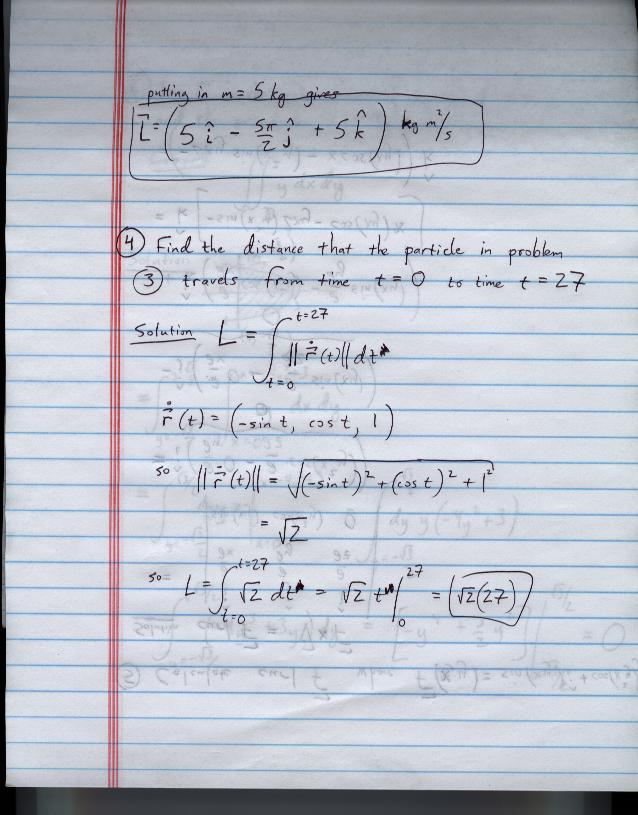 putting in m = 5 kg gives
L⃗ = (5 î - 5π/2 ĵ + 5 k̂) kg m²/s
④ Find the distance that the particle in problem
③ travels from time t = 0 to time t = 27
Solution L = ∫_{t=0}^{t=27} || ṙ⃗(t) || dt
ṙ⃗(t) = (-sin t, cos t, 1)
so || ṙ⃗(t) || = √((-sin t)² + (cos t)² + 1²)
= √2
so L = ∫_{t=0}^{t=27} √2 dt = √2 t |_0^27 = √2(27)